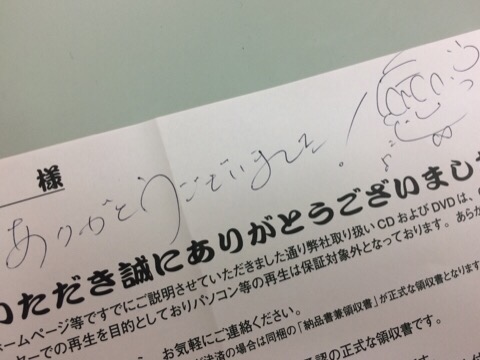 様
ありがとうございました!
いただき誠にありがとうございまし
ホームページ等ですでにご説明させていただきました通り弊社取り扱いCDおよびDVDは、
ターでの再生を目的としておりパソコン等の再生は保証対象外となっております。あらか
お気軽にご連絡ください。
決済の場合は同梱の「納品書兼領収書」が正式な領収書となります
の正式な領収書です。